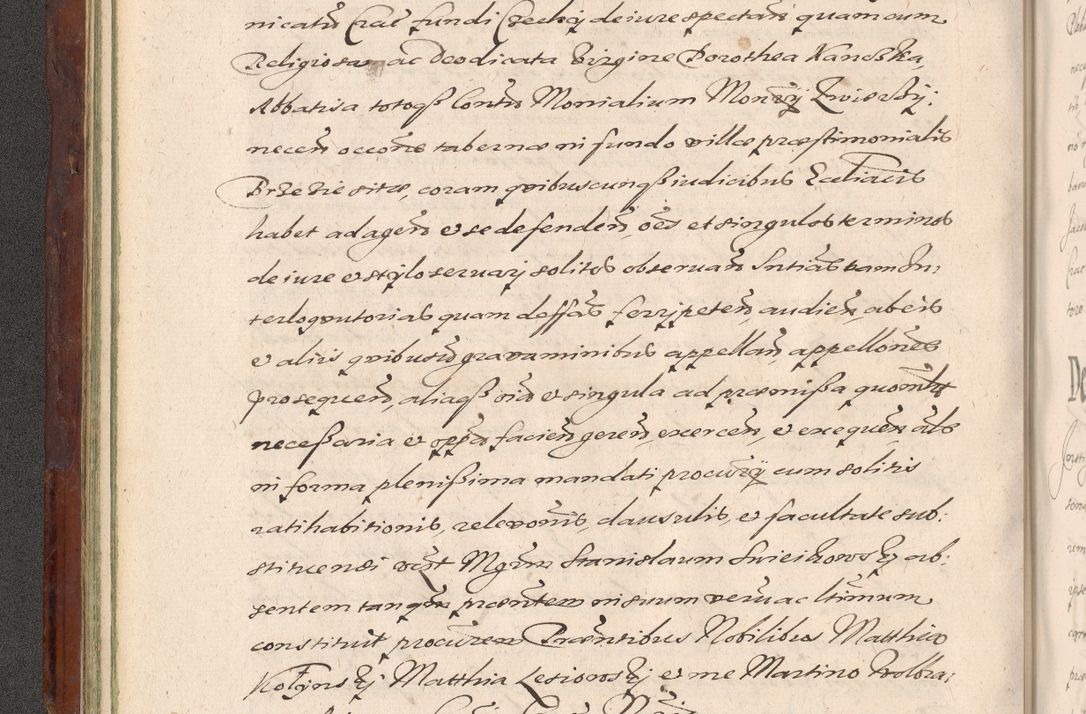 nicatū Crac̄ fundi Czechÿ de iure spectan̄ quam cum
Religiosa ac Deodicata Virgine Dorothea Kanctka
Abbatisa totoqȝ Contū Monialium Monrÿ Zwierzÿ:
necen̄ occōne tabernæ in fundo villæ præstimonialis
Brzezie sitæ, coram quibuscunqȝ iudicibus Eccliacis
habet ad agen̄ et se defenden̄, oēs et singulos terminos
de iure et stylo seruarj solitos obseruan̄ Sntias tam In:
terloqutorias quam deffās ferrj peten̄, audien̄, ab eis
et alÿs quibusuis grauaminibus appellan̄, appellōnes
prosequen̄, aliaqȝ oīa et singula ad præmissa quomlt
necessaria et oppa facien̄ geren̄, exercen̄, et exequen̄ als
in forma plenissima mandati procurÿ cum solitis
ratihabitionis, releuonis, clausulis, et facultate sub:
stituendi vist Mgrum Stanislaum Swieikowskj ab:
sentem tanqm̄ præntem in suum verū ac lttimum
constituit procurem Præntibus Nobilibus Matthia
Kossynskj Matthia Lesiowskj et me Martino Wolbra: